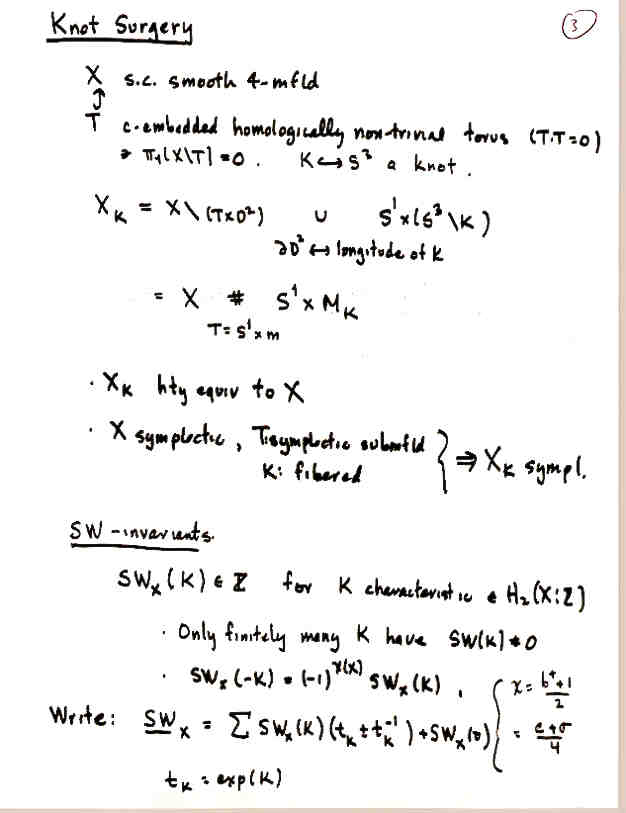 Knot Surgery
3
X s.c. smooth 4-mfld
↑
T c-embedded homologically non-trivial torus (T·T=0)
⇒ π₁(X\T)=0. K↔S³ a knot.
X_K = X\(T×D²) ∪ S¹×(S³\K)
∂D² ↔ longitude of K
= X # S¹×M_K
T=S¹×m
· X_K hty equiv to X
· X symplectic, T symplectic submfld } ⇒ X_K sympl.
K: fibered
SW-invariants.
SW_X(K) ∈ Z for K characteristic ∈ H₂(X:Z)
· Only finitely many K have SW(K)≠0
· SW_X(-K) = (-1)^χ(X) SW_X(K), { χ = b⁺+1/2
Write: SW_X = Σ SW_X(K)(t_K + t_K⁻¹) + SW_X(0) = e+σ/4
t_K = exp(K)